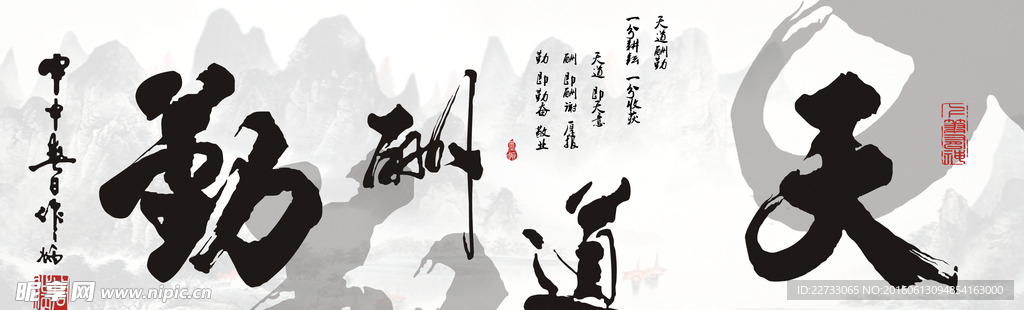 天道酬勤
天道酬勤
一分耕耘 一分收获
天道 即天意
酬 即酬谢 厚报
勤 即勤奋 敬业
春日作
昵图网 www.nipic.cn
ID:22733065 NO:20160613094854163000